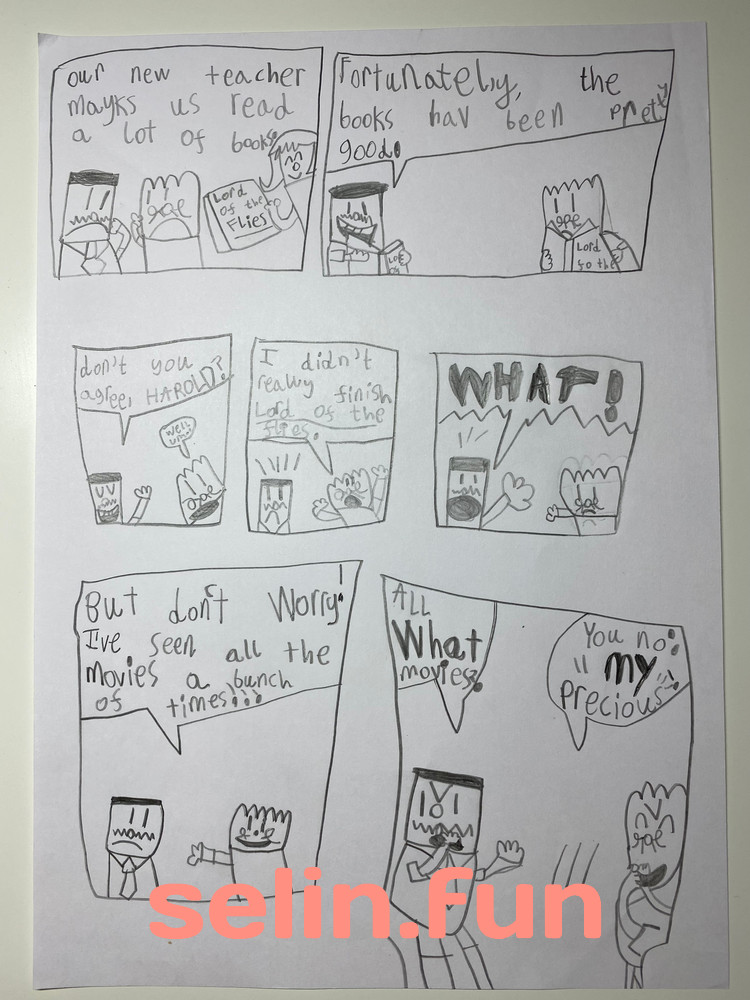 our new teacher
mayks us read
a lot of books.
Lord
of the
Flies
Fortunately, the
books hav been pretty
good.
Lord
to the
don't you
agree, HAROLD?
well
um..
I didn't
really finish
Lord of the
flies.
WHAT!
But don't Worry!
I've seen all the
movies a bunch
of times!!!
ALL
What
movies?
You no:
"my
Precious"
selin.fun